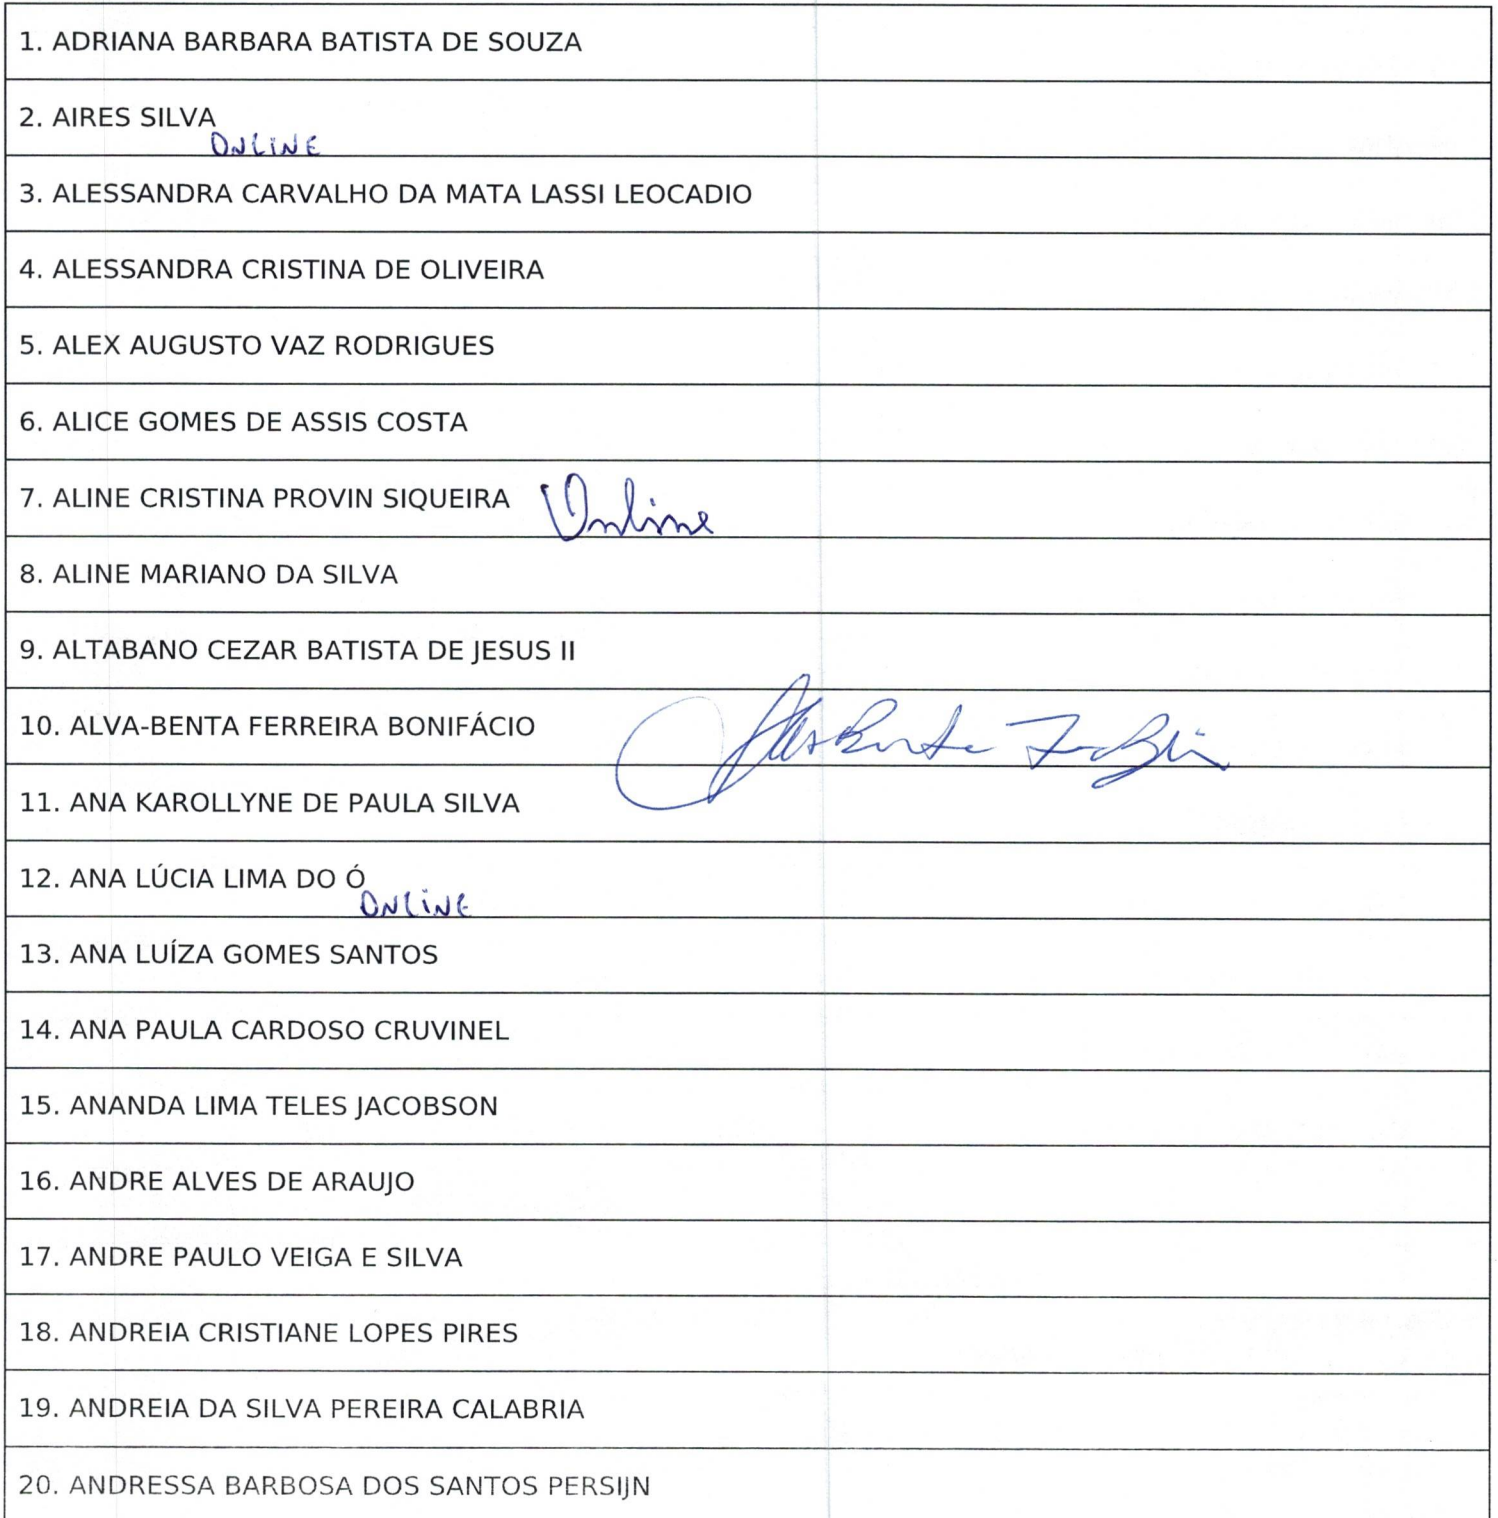 1. ADRIANA BARBARA BATISTA DE SOUZA
2. AIRES SILVA
ONLINE
3. ALESSANDRA CARVALHO DA MATA LASSI LEOCADIO
4. ALESSANDRA CRISTINA DE OLIVEIRA
5. ALEX AUGUSTO VAZ RODRIGUES
6. ALICE GOMES DE ASSIS COSTA
7. ALINE CRISTINA PROVIN SIQUEIRA Online
8. ALINE MARIANO DA SILVA
9. ALTABANO CEZAR BATISTA DE JESUS II
10. ALVA-BENTA FERREIRA BONIFÁCIO
11. ANA KAROLLYNE DE PAULA SILVA
12. ANA LÚCIA LIMA DO Ó
ONLINE
13. ANA LUÍZA GOMES SANTOS
14. ANA PAULA CARDOSO CRUVINEL
15. ANANDA LIMA TELES JACOBSON
16. ANDRE ALVES DE ARAUJO
17. ANDRE PAULO VEIGA E SILVA
18. ANDREIA CRISTIANE LOPES PIRES
19. ANDREIA DA SILVA PEREIRA CALABRIA
20. ANDRESSA BARBOSA DOS SANTOS PERSIJN